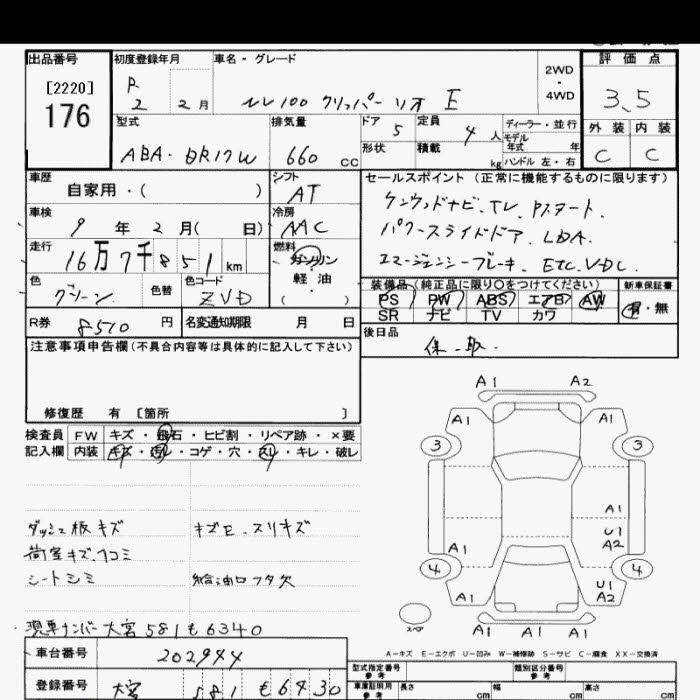 出品番号 初度登録年月 車名・グレード 2WD・4WD 評価点
[2220] 176
R 2 2月 NV100 クリッパーリオ E 3.5
型式 排気量 ドア 5 定員 4人 ディーラー・並行 外装 内装
モデル年式 年
ABA-DR17W 660cc 形状 積載 kg ハンドル 左・右 C C
車歴 自家用・( ) シフト AT セールスポイント(正常に機能するものに限ります)
ケンウッドナビ.TV.Pスタート.
車検 9年2月( 日) 冷房 AAC パワースライドドア.LDA.
走行 16万7千851km 燃料 ガソリン・軽油・( ) エマージェンシーブレーキ.ETC.VDC.
色 グリーン 色替 色コード ZVD 装備品(純正品に限り○をつけてください) 新車保証書
PS PW ABS エアB AW 有・無
SR ナビ TV カワ
R券 8510円 名変通知期限 月 日 後日品
保.取.
注意事項申告欄(不具合内容等は具体的に記入して下さい)
修復歴 有 〔箇所 〕
検査員記入欄 FW キズ・飛石・ヒビ割・リペア跡・×要
内装 キズ・汚レ・コゲ・穴・スレ・キレ・破レ
ダッシュ板キズ キズE.スリキズ
荷室キズ.ヘコミ
シートシミ 給油口フタ欠
・現車ナンバー大宮581も6340
車台番号 202944
登録番号 大宮 581 も6430
A1 A2
A1 A1
3 3
A1
U1
A2
A1
4 4
A1 U1
A2
スペア
A1 A1 A1
A-キズ E-エクボ U-凹み W-補修跡 S-サビ C-腐食 XX-交換済
型式指定番号 参考 類別区分番号 参考
車庫証明用 参考 長さ cm 幅 cm 高さ cm